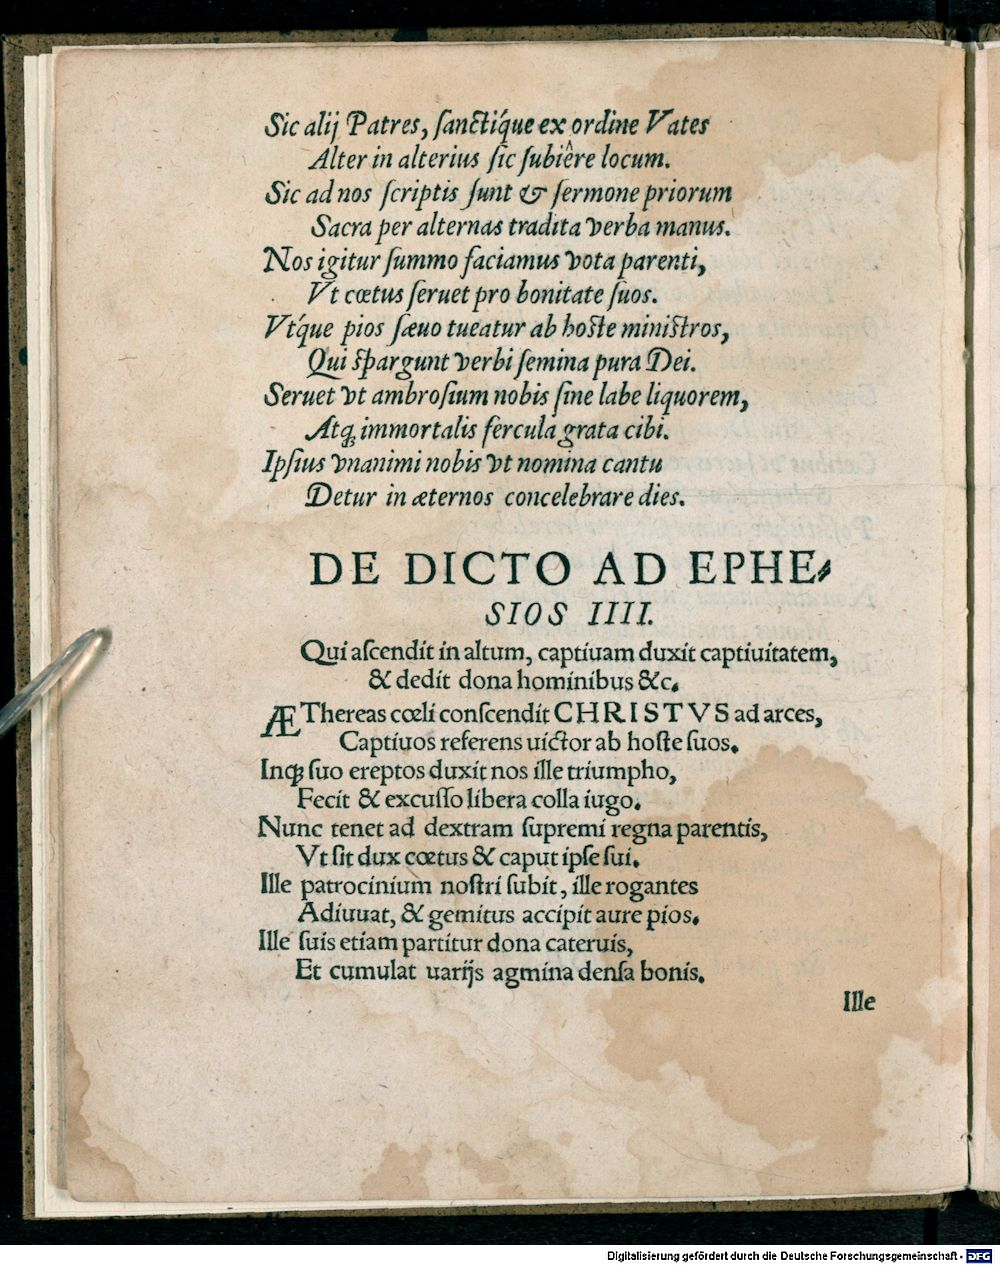 Sic alij Patres, ſanctiq́ue ex ordine Vates
Alter in alterius ſic ſubiêre locum.
Sic ad nos ſcriptis ſunt & ſermone priorum
Sacra per alternas tradita verba manus.
Nos igitur ſummo faciamus vota parenti,
Vt cœtus ſeruet pro bonitate ſuos.
Vtq́ue pios ſæuo tueatur ab hoſte miniſtros,
Qui ſpargunt verbi ſemina pura Dei.
Seruet vt ambroſium nobis ſine labe liquorem,
Atq; immortalis fercula grata cibi.
Ipſius vnanimi nobis vt nomina cantu
Detur in æternos concelebrare dies.
DE DICTO AD EPHE⸗
SIOS IIII.
Qui aſcendit in altum, captiuam duxit captiuitatem,
& dedit dona hominibus &c.
ÆThereas cœli conſcendit CHRISTVS ad arces,
Captiuos referens uictor ab hoſte ſuos.
Inq; ſuo ereptos duxit nos ille triumpho,
Fecit & excuſſo libera colla iugo.
Nunc tenet ad dextram ſupremi regna parentis,
Vt ſit dux cœtus & caput ipſe ſui.
Ille patrocinium noſtri ſubit, ille rogantes
Adiuuat, & gemitus accipit aure pios.
Ille ſuis etiam partitur dona cateruis,
Et cumulat uarijs agmina denſa bonis.
Ille
Digitalisierung gefördert durch die Deutsche Forschungsgemeinschaft - DFG